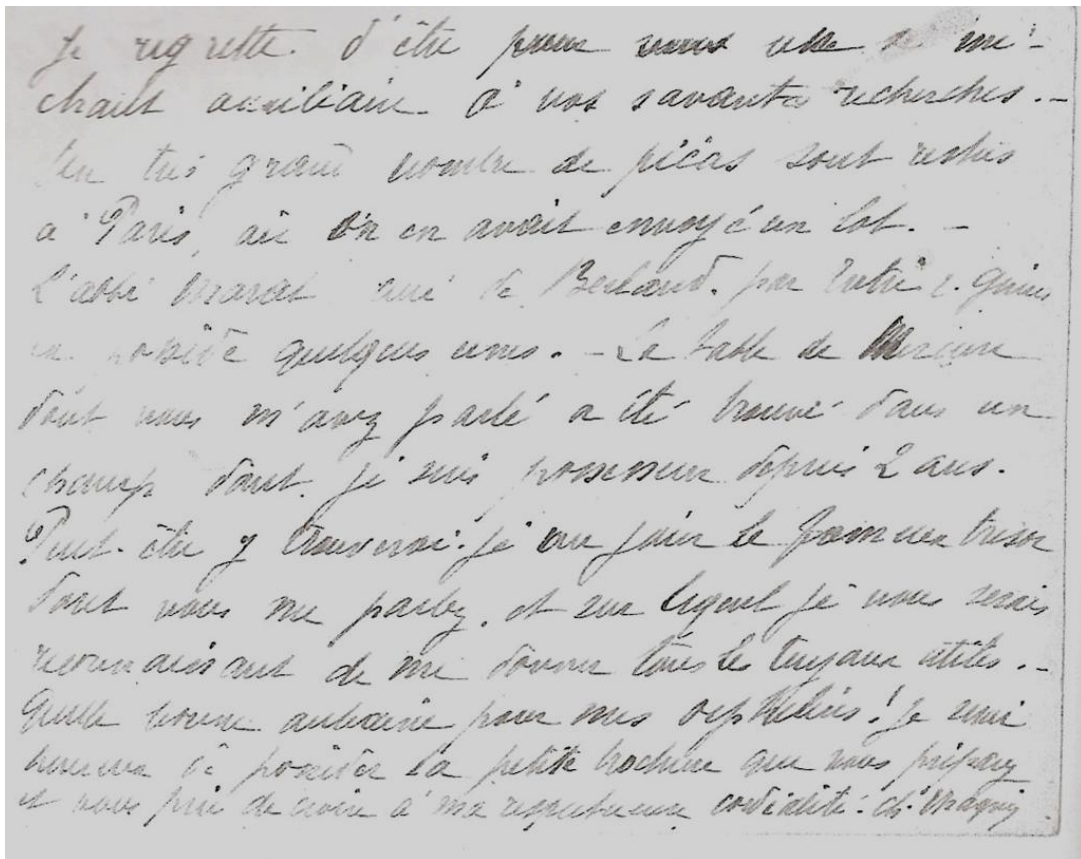 Je regrette d'être pour vous un si mé-
chant auxiliaire à vos savantes recherches. -
Un très grand nombre de pièces sont restées
à Paris, où on en avait envoyé un lot. -
L'abbé curé de par
en possède quelques unes. - La table de Mercure
dont vous m'avez parlé a été trouvé dans un
champ dont je suis possesseur depuis 2 ans.
Peut-être y trouverai-je un jour le fameux trésor
dont vous me parlez, et sur lequel je vous serais
reconnaissant de me donner tous les tuyaux utiles. -
Quelle bonne aubaine pour mes orphelins! Je serai
heureux de posséder la petite brochure que vous préparez
et vous prie de croire à ma respectueuse cordialité. ch.